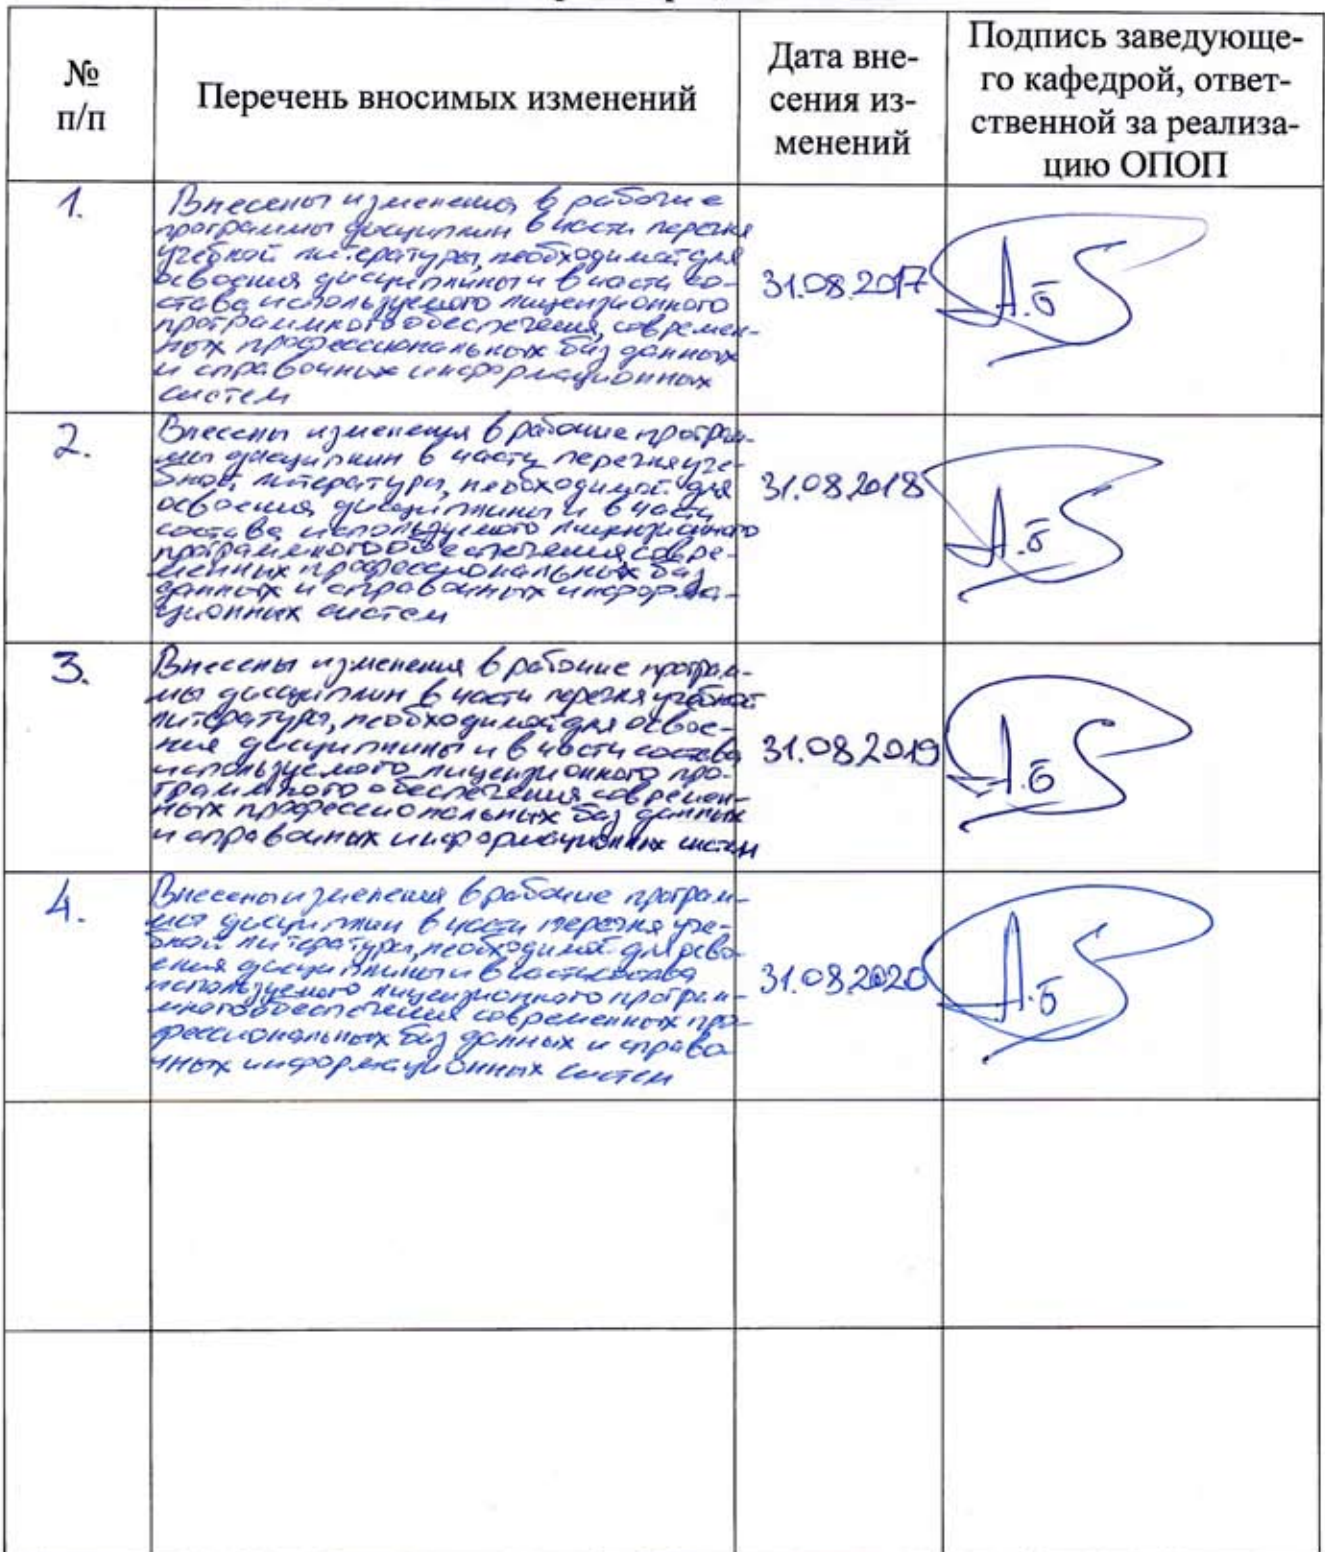 №
п/п
Перечень вносимых изменений
Дата вне-
сения из-
менений
Подпись заведующе-
го кафедрой, ответ-
ственной за реализа-
цию ОПОП
1.
Внесены изменения в рабочие
программы дисциплин в части перечня
учебной литературы, необходимой для
освоения дисциплины и в части со-
става используемого лицензионного
программного обеспечения, современ-
ных профессиональных баз данных
и справочных информационных
систем
31.08.2017
А.б
2.
Внесены изменения в рабочие програм-
мы дисциплин в части перечня уче-
бной литературы, необходимой для
освоения дисциплины и в части
состава используемого лицензионного
программного обеспечения совре-
менных профессиональных баз
данных и справочных информа-
ционных систем
31.08.2018
А.б
3.
Внесены изменения в рабочие програм-
мы дисциплин в части перечня учебной
литературы, необходимой для освое-
ния дисциплины и в части состава
используемого лицензионного про-
граммного обеспечения современ-
ных профессиональных баз данных
и справочных информационных систем
31.08.2019
А.б
4.
Внесены изменения в рабочие програм-
мы дисциплин в части перечня уче-
бной литературы, необходимой для осво-
ения дисциплины и в части состава
используемого лицензионного програм-
много обеспечения современных про-
фессиональных баз данных и справо-
чных информационных систем
31.08.2020
А.б